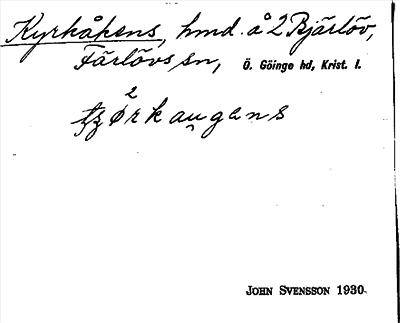 Kyrkåkens, hmd. å 2 Bjärlöv,
Färlövs sn, Ö. Göinge hd, Krist. l.
2
ørkaugens
JOHN SVENSSON 1930.